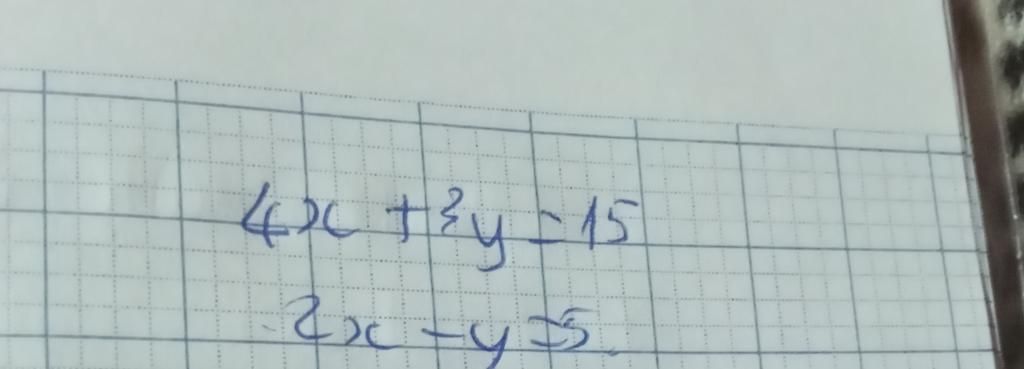 4x + 3y = 15
2x - y = 5